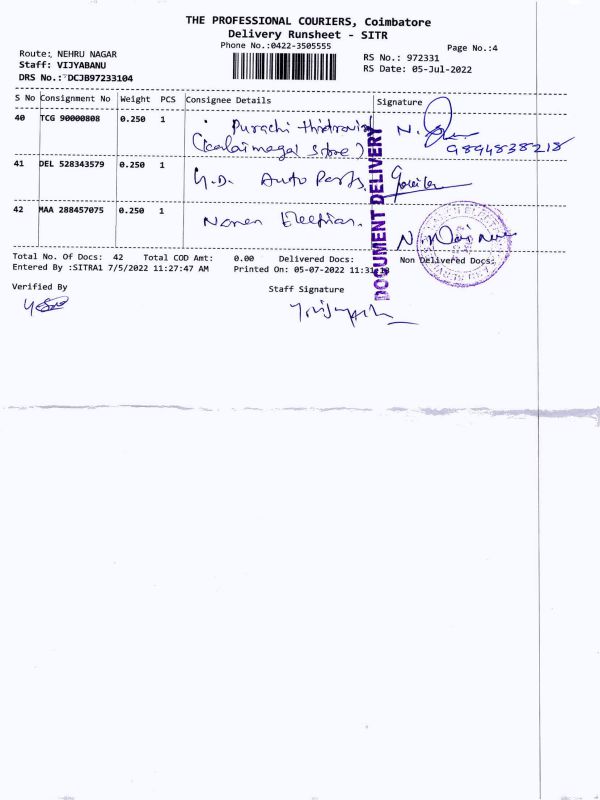 THE PROFESSIONAL COURIERS, Coimbatore
Delivery Runsheet - SITR
Phone No.:0422-3505555
Page No.:4
Route: NEHRU NAGAR
RS No.: 972331
Staff: VIJYABANU
RS Date: 05-Jul-2022
DRS No.: DCJB97233104
S No Consignment No Weight PCS Consignee Details Signature
40 TCG 90000808 0.250 1 Purachi
(Kalaimagal Store) 9894838218
41 DEL 528343579 0.250 1 G.D. Auto Parts.
42 MAA 288457075 0.250 1
DOCUMENT DELIVERY
Total No. Of Docs: 42 Total COD Amt: 0.00 Delivered Docs: Non Delivered Docs:
Entered By :SITRA1 7/5/2022 11:27:47 AM Printed On: 05-07-2022
Verified By Staff Signature